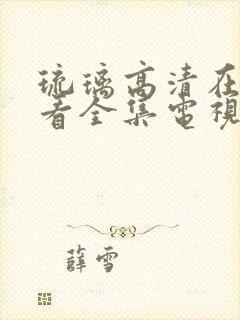 琉璃高清在
看全集電視
薛雪